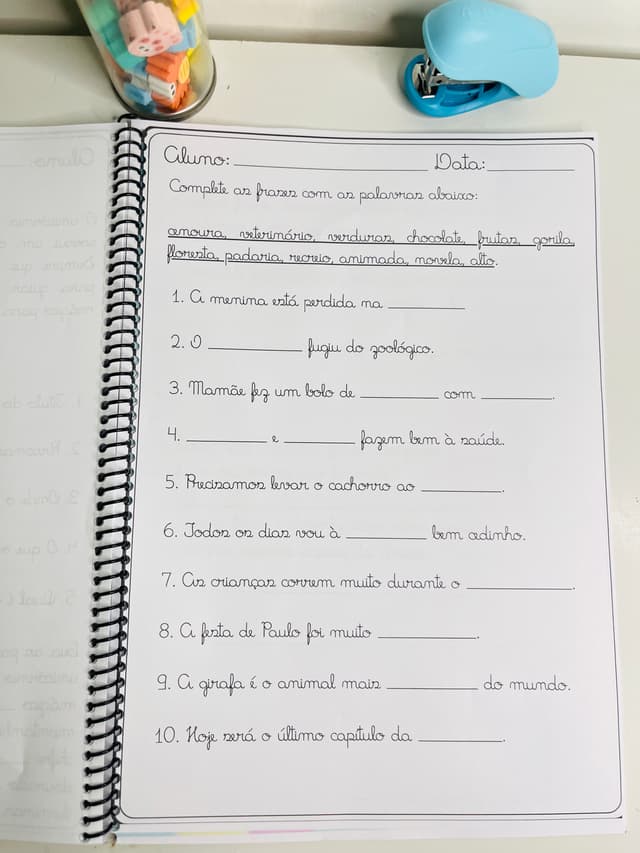 Aluno: ____________________ Data: __________
Complete as frases com as palavras abaixo:
cenoura, veterinário, verduras, chocolate, frutas, gorila,
floresta, padaria, recreio, animada, novela, alto.
1. A menina está perdida na __________
2. O __________ fugiu do zoológico.
3. Mamãe fez um bolo de __________ com __________.
4. __________ e __________ fazem bem à saúde.
5. Precisamos levar o cachorro ao __________.
6. Todos os dias vou à __________ bem cedinho.
7. As crianças correm muito durante o __________.
8. A festa de Paulo foi muito __________.
9. A girafa é o animal mais __________ do mundo.
10. Hoje será o último capítulo da __________.